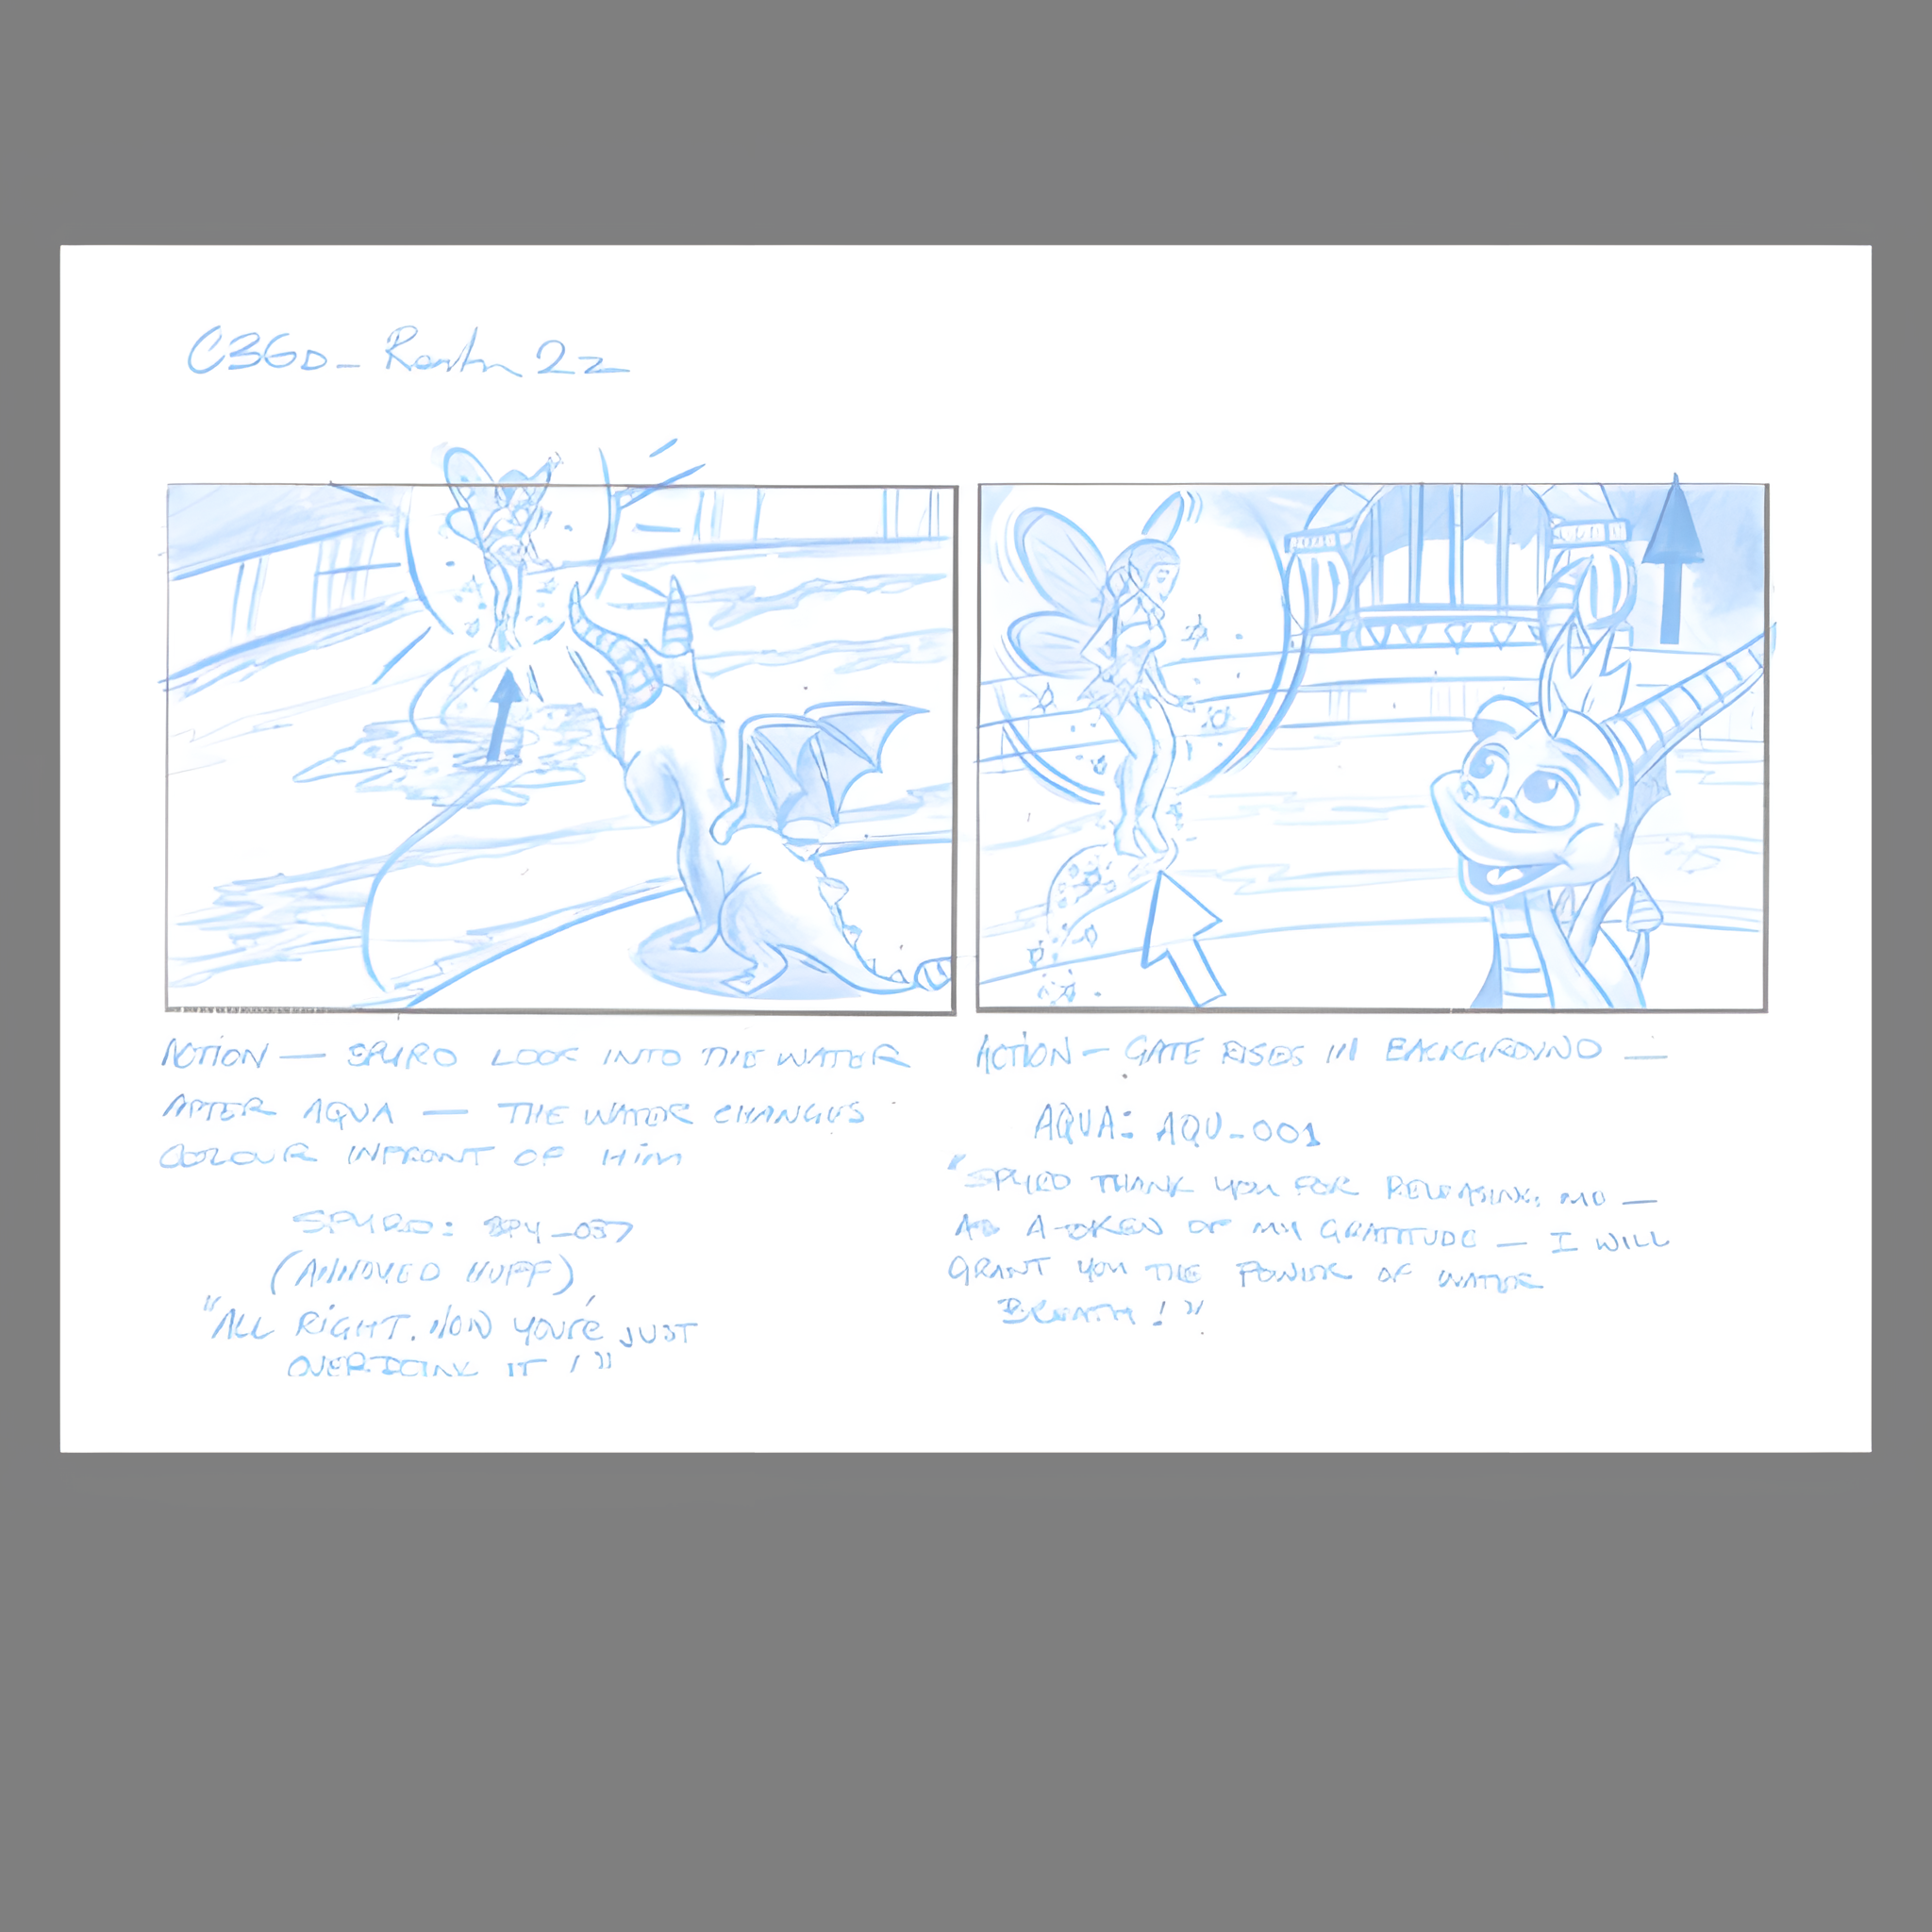 ACTION — SPYRO LOOK INTO THE WATER
AFTER AQUA — THE WATER CHANGES
COLOUR INFRONT OF HIM
SPYRO: SPY_037
(ANNOYED HUFF)
"ALL RIGHT. NOW YOU'RE JUST
OVERDOING IT!"
ACTION — GATE RISES IN BACKGROUND —
AQUA: AQU_001
"SPYRO THANK YOU FOR RELEASING ME —
AS A TOKEN OF MY GRATITUDE — I WILL
GRANT YOU THE POWER OF WATER
BREATH!"